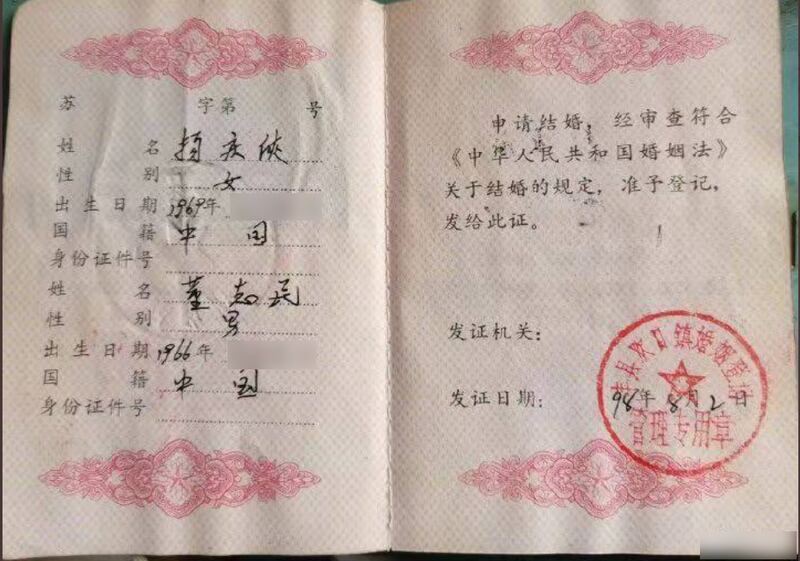 苏 字第 号
姓 名 杨庆侠
性 别 女
出生日期 1969年
国 籍 中 国
身份证件号
姓 名 董志民
性 别 男
出生日期 1966年
国 籍 中 国
身份证件号
申请结婚，经审查符合
《中华人民共和国婚姻法》
关于结婚的规定，准予登记，
发给此证。
发证机关：
发证日期： 98年8月2日
丰县欢口镇婚姻登记
管理专用章